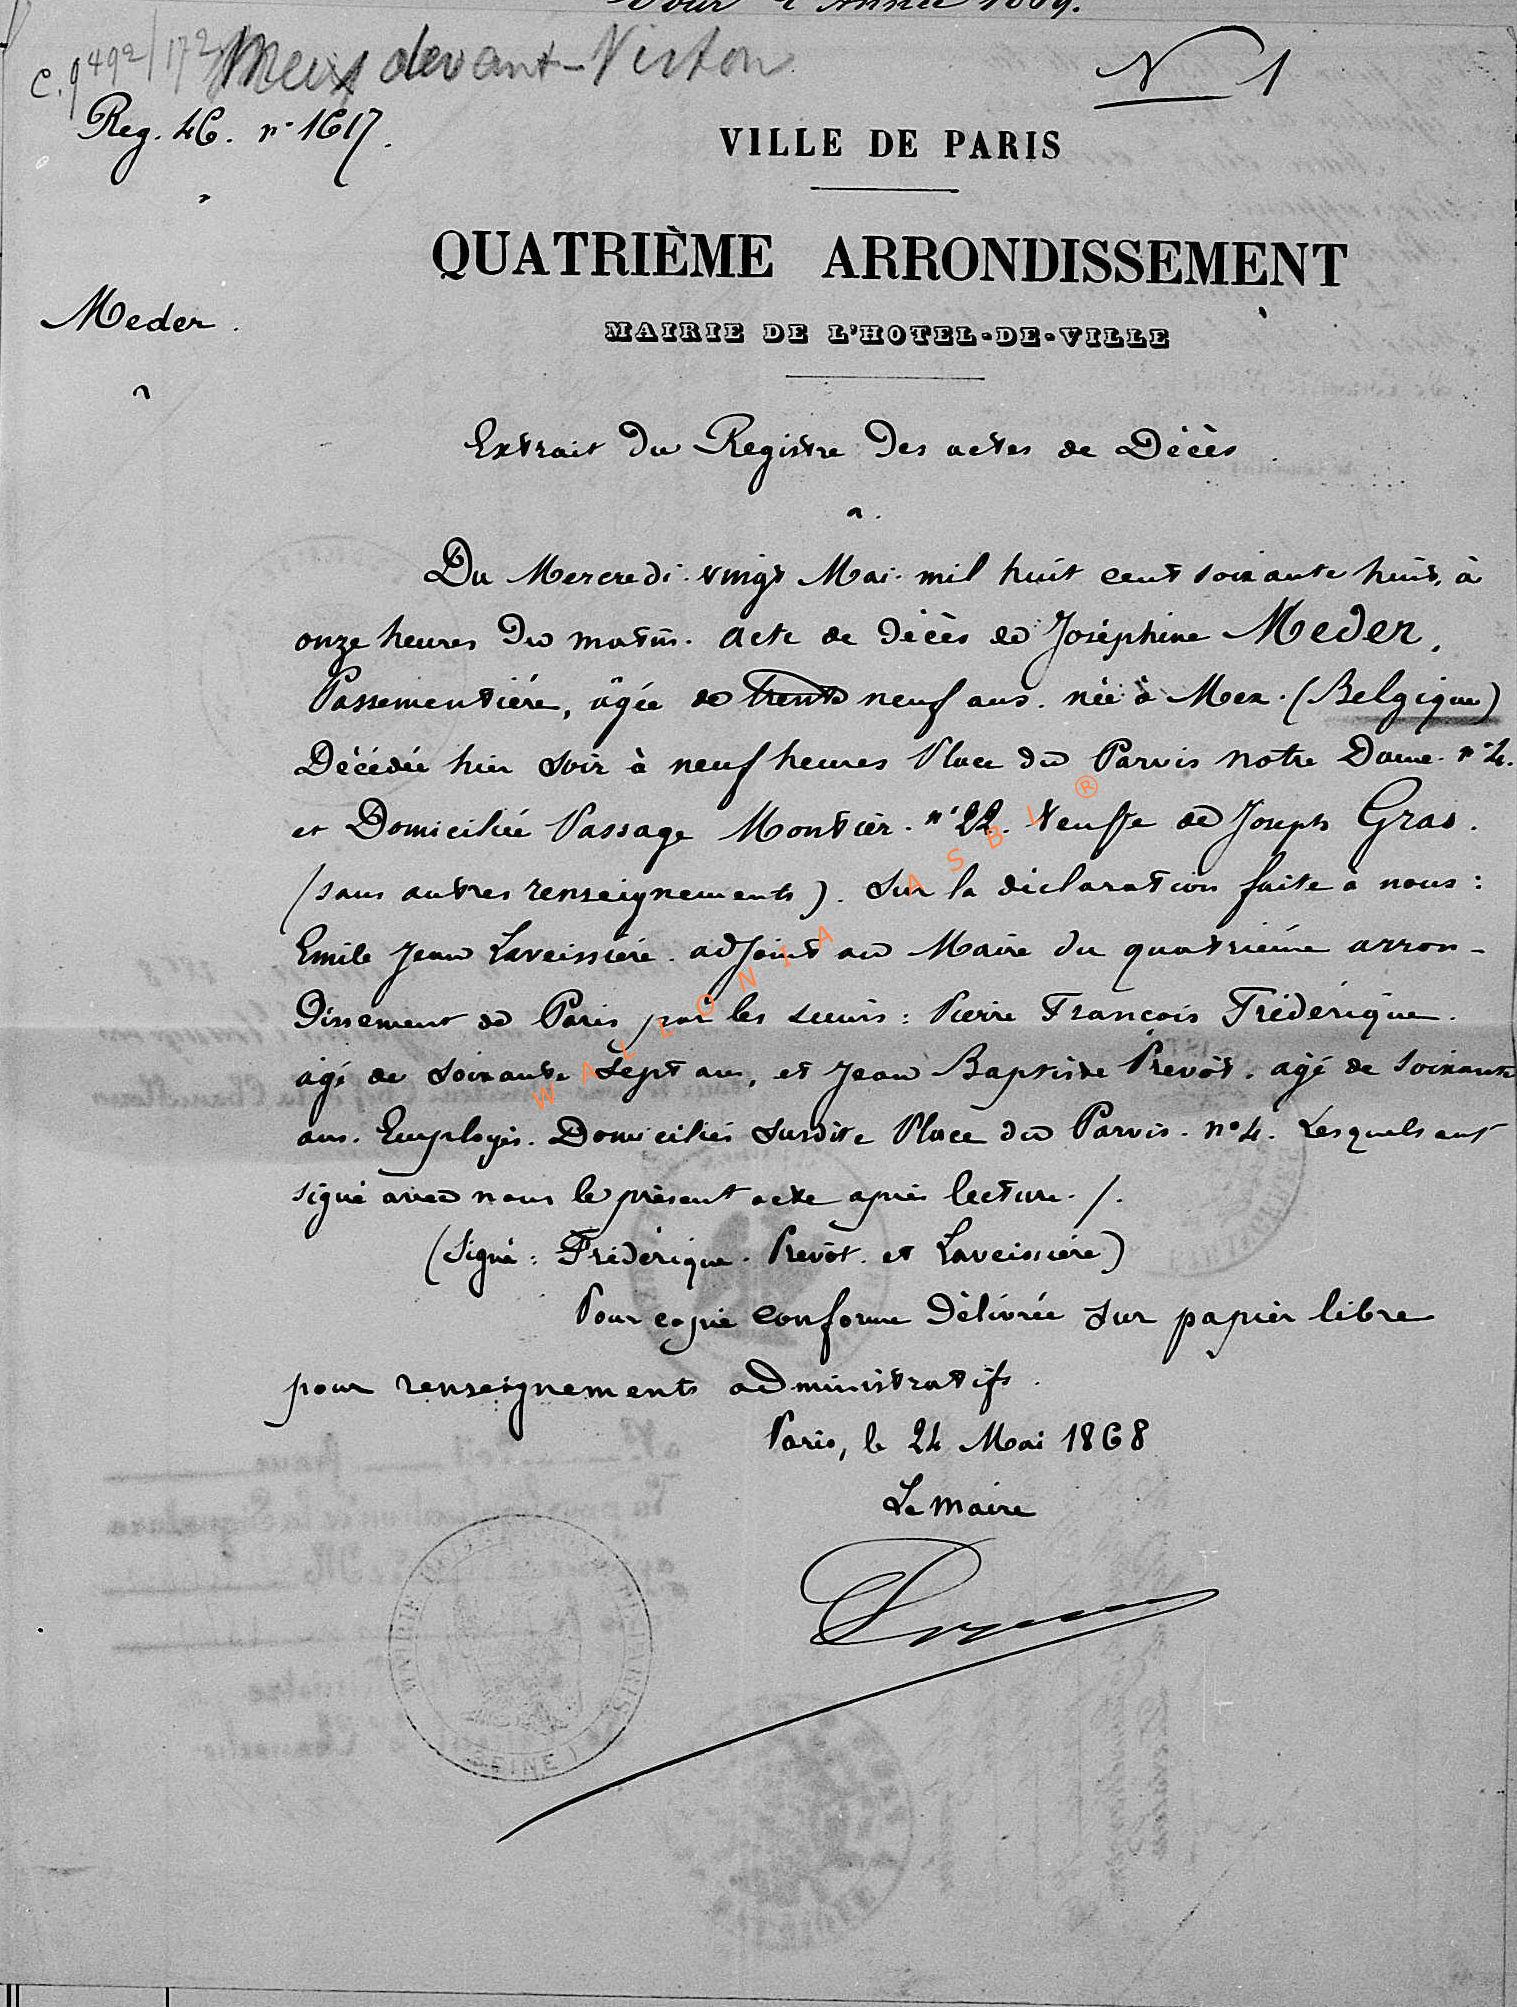 Pour l'Année 1869.
C. 9492/172 Meix devant-Virton
N 1
Reg. 46. n° 1617.
VILLE DE PARIS
QUATRIÈME ARRONDISSEMENT
Meder.
MAIRIE DE L'HOTEL-DE-VILLE
Extrait du Registre des actes de Décès.
Du Mercredi vingt Mai mil huit cent soixante huit, à
onze heures du matin. Acte de décès de Joséphine Meder,
Passementière, âgée de trente neuf ans. née à Mex. (Belgique)
Décédée hier soir à neuf heures Place du Parvis notre Dame. n° 4.
et Domiciliée Passage Montier. n° 22. Veuffe de Joseph Gras.
(sans autres renseignements). Sur la déclaration faite à nous:
Emile Jean Laveissière. adjoint au Maire du quatrième arron-
dissement de Paris par les sieurs: Pierre François Frédérique.
âgé de soixante sept ans, et Jean Baptiste Prevôt. âgé de soixante
ans. Employés. Domiciliés susdite Place du Parvis. n° 4. Lesquels ont
signé avec nous le présent acte après lecture. /.
(Signé: Frédérique. Prevôt. et Laveissière)
Pour copie conforme délivrée sur papier libre
pour renseignements administratifs.
Paris, le 24 Mai 1868
Le Maire
WALLONIA ASBL ®
SEINE